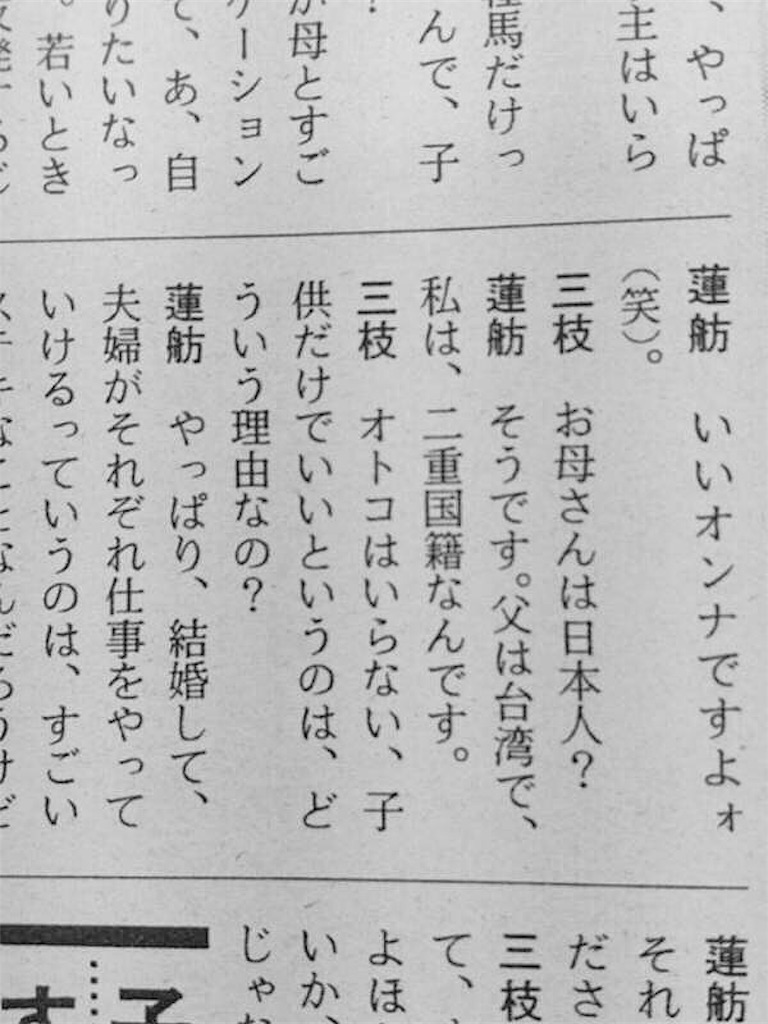 、やっぱ
主はいら
馬だけっ
んで、子
？
が母とすご
ケーション
て、あ、自
りたいなっ
。若いとき
蓮舫　いいオンナですよォ
（笑）。
三枝　お母さんは日本人？
蓮舫　そうです。父は台湾で、
私は、二重国籍なんです。
三枝　オトコはいらない、子
供だけでいいというのは、ど
ういう理由なの？
蓮舫　やっぱり、結婚して、
夫婦がそれぞれ仕事をやって
いけるっていうのは、すごい
ステキなことなんだろうけど
蓮舫
それ
ださ
三枝
て、
よほ
いか、
じゃな
子
す